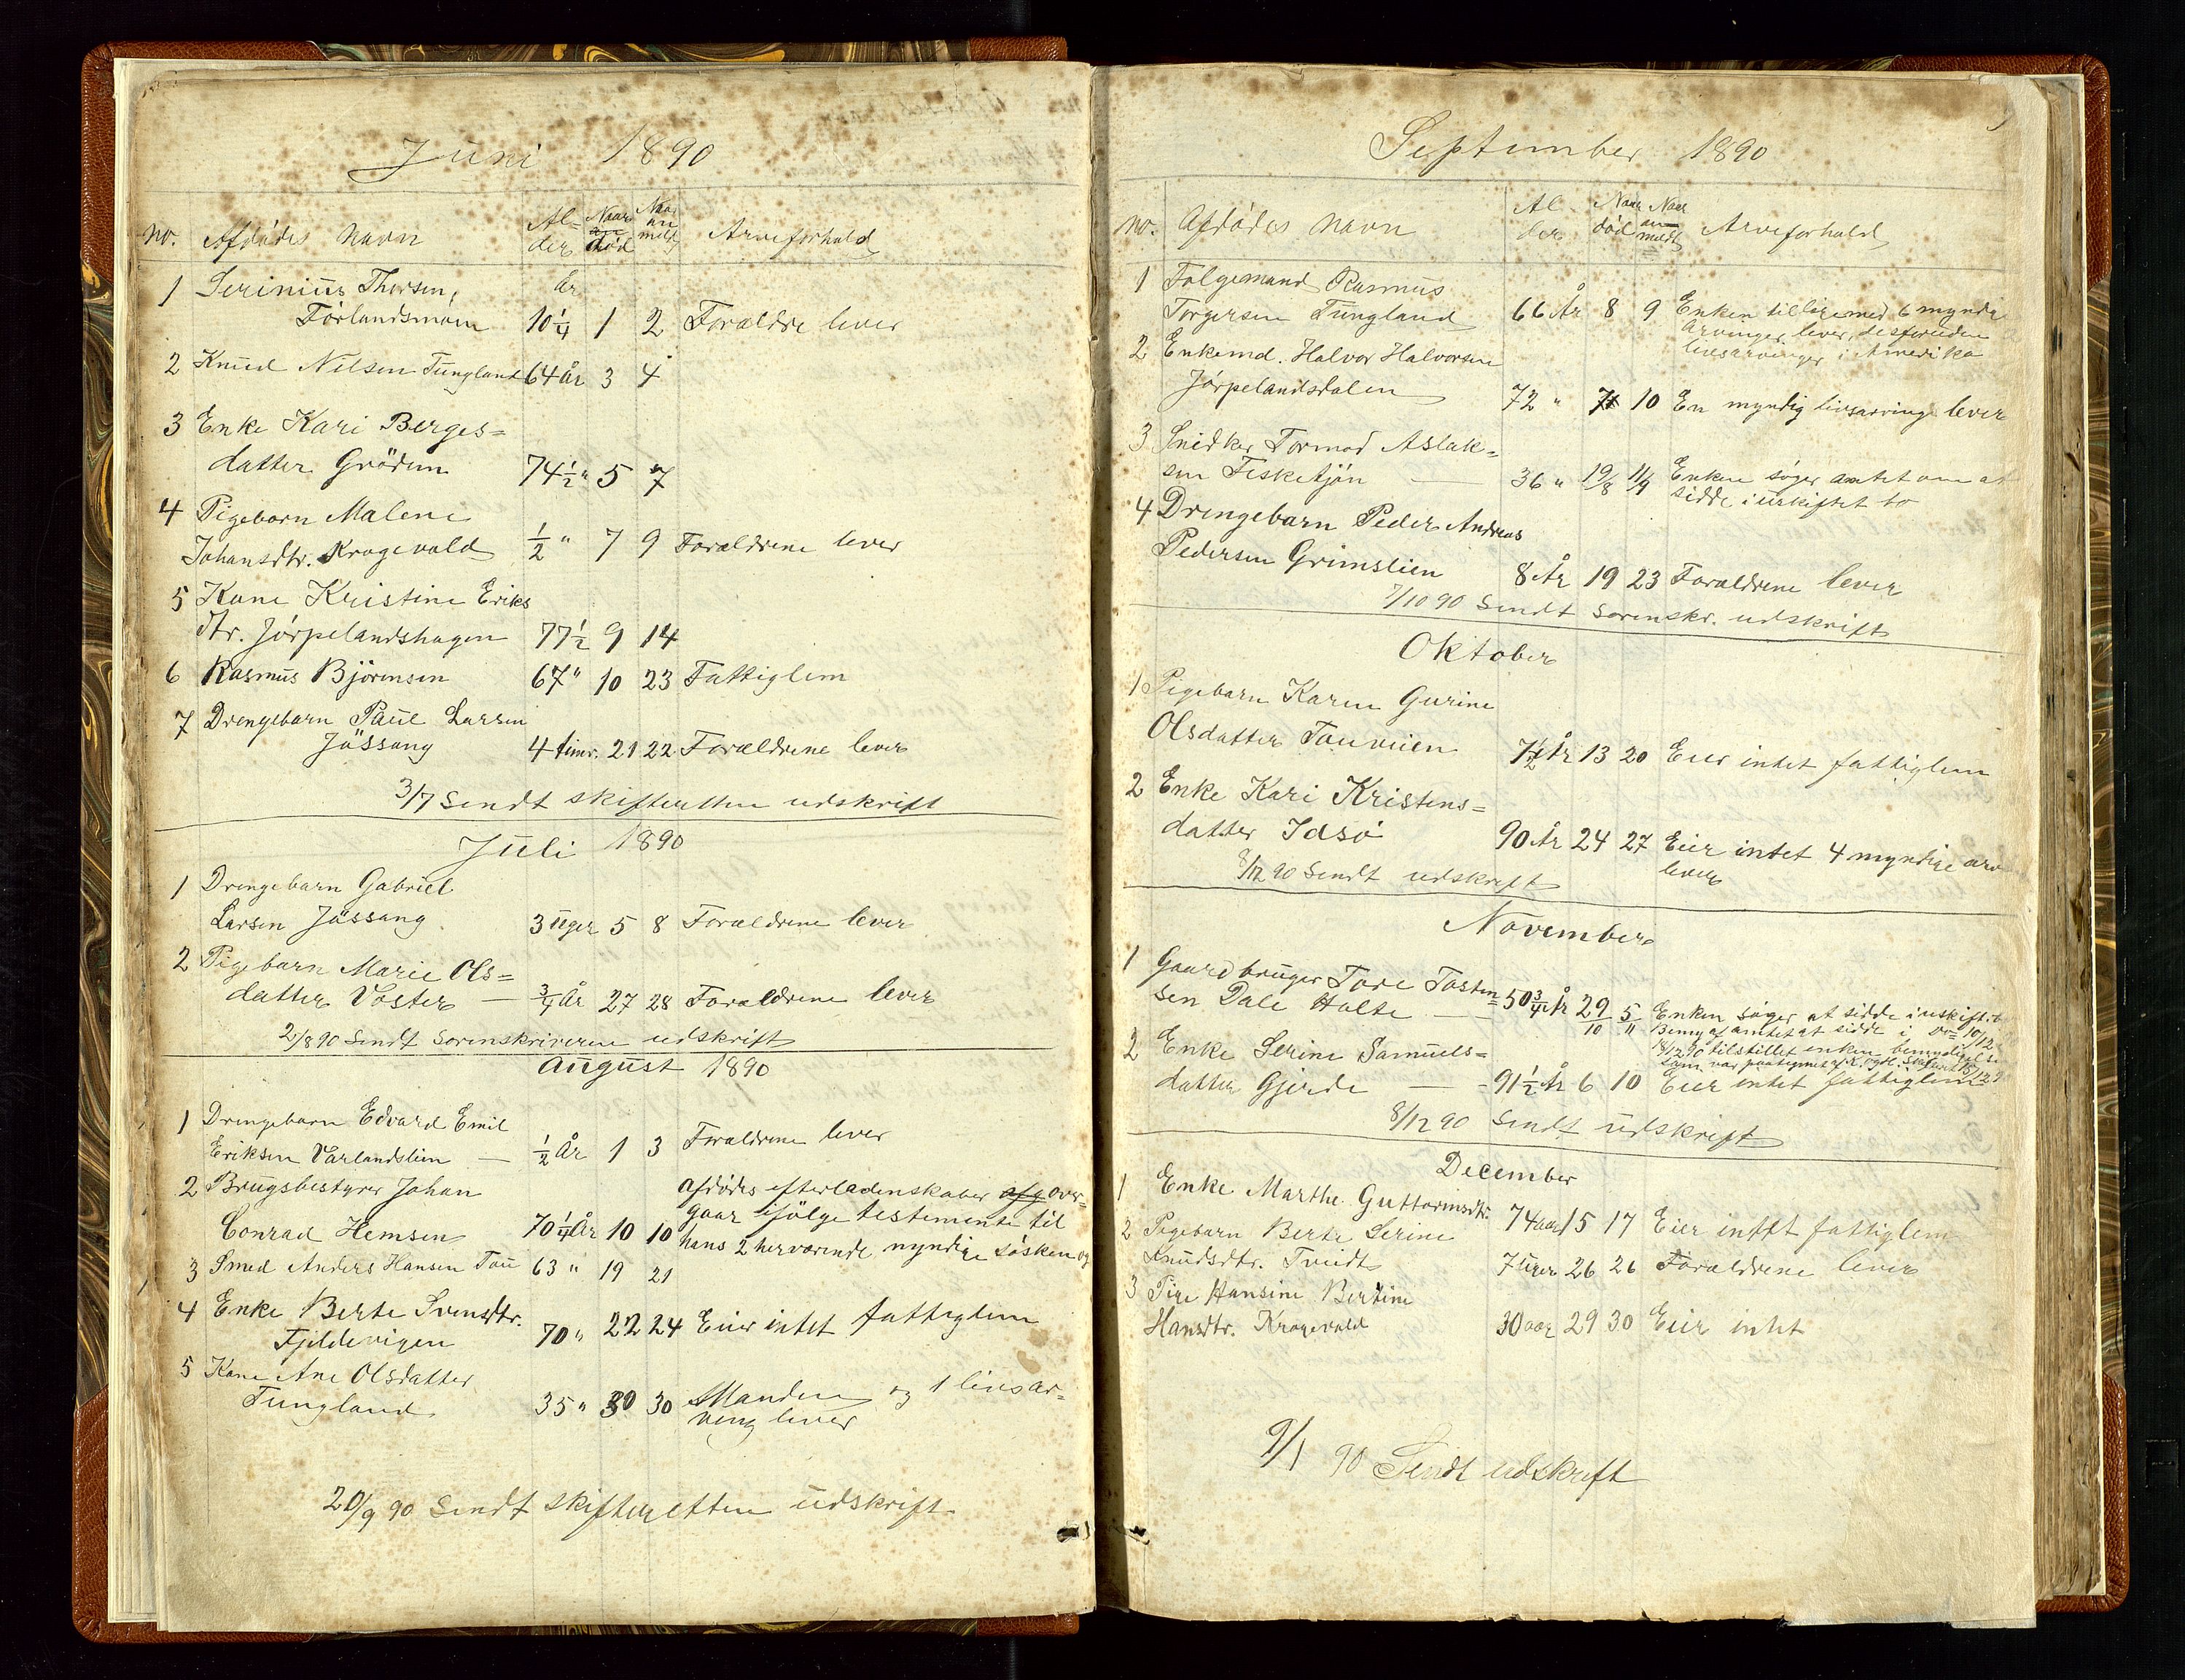 Juni 1890
No. Afdødes Navn Al- der Naar død Naar an meldt Arveforhold
1 Serinius Thorsen, År
Førlandsmoen 10¼ 1 2 Forældre lever
2 Knud Nilsen Tungland 64 År 3 4
3 Enke Kari Berges=
datter Grödem 74½ " 5 7
4 Pigebarn Malene
Johansdtr. Krogevold ½ " 7 9 Forældrene lever
5 Kone Kristine Eriks
dtr. Jørpelandshagen 77½ 9 14
6 Rasmus Björensen 67 " 10 23 Fattiglem
7 Drengebarn Paul Larsen
Jössang 4 timr. 21 22 Forældrene lever
3/7 Sendt skifteretten udskrift
Juli 1890
1 Drengebarn Gabriel
Larsen Jössang 3 uger 5 8 Forældrene lever
2 Pigebarn Marie Ols=
datter Voster — ¾ År 27 28 Forældrene lever
2/8 90 Sendt Sorenskriveren udskrift
August 1890
1 Drengebarn Edvard Emil
Eriksen Varlandslien — ½ År 1 3 Forældrene lever
2 Brugsbestyrer Johan Afdødes efterladenskaber afg over=
Conrad Hemsen 70¼ År 10 10 gaar ifölge testemente til
hans 2 herværende myndige søsken og
3 Smed Anders Hansen Tou 63 " 19 21
4 Enke Berte Svensdtr.
Fjeldevigen 70 " 22 24 Eier intet fattiglem
5 Kone Ane Olsdatter
Tungland 35 " 30 30 Manden og 1 livsar=
ving lever
20/9 90 Sendt skifteretten udskrift
September 1890
No. Afdødes Navn Al- der Naar død Naar an- meldt Arveforhold
1 Folgemand Rasmus
Torgersen Tungland 66 År 8 9 Enken tilligemed 6 myndige
Arvinger lever, desforuden
livsarvinger i Amerika
2 Enkemd. Halvor Halvorsen
Jørpelandsdalen 72 " 7 10 En myndig livsarving lever
3 Snidker Tormod Aslak=
sen Fisketjön — 36 " 19/8 11/9 Enken søger amtet om at
sidde i uskiftet bo
4 Drengebarn Peder Andreas
Pedersen Grimslien 8 År 19 23 Forældrene lever
7/10 90 Sendt Sorenskr. udskrift
Oktober
1 Pigebarn Karen Gurine
Olsdatter Tauveien 7½ År 13 20 Eier intet fattiglem
2 Enke Kari Kristens=
datter Idsø 90 År 24 27 Eier intet 4 myndige arv
lever
8/12 90 Sendt udskrift
November
1 Gaardbruger Tore Tosten=
sen Dale Holte — 50¾ År 29/10 5/11 Enken søger at sidde i uskiftet b
Bemy af amtet at sidde i do 10/12
18/12 90 tilstillet enken bemyndigelse
som var paategnet af
2 Enke Serine Samuels=
datter Gjerde — 91½ År 6 10 Eier intet fattiglem
8/12 90 Sendt udskrift
December
1 Enke Marthe Guttormsdtr. 74 aar 15 17 Eier intet fattiglem
2 Pigebarn Berte Serine
Knudsdtr. Tveidt 7 uger 26 26 Forældrene lever
3 Pige Hansine Bertine
Hansdtr. Krogevold 30 aar 29 30 Eier intet
9/1 90 Sendt udskrift